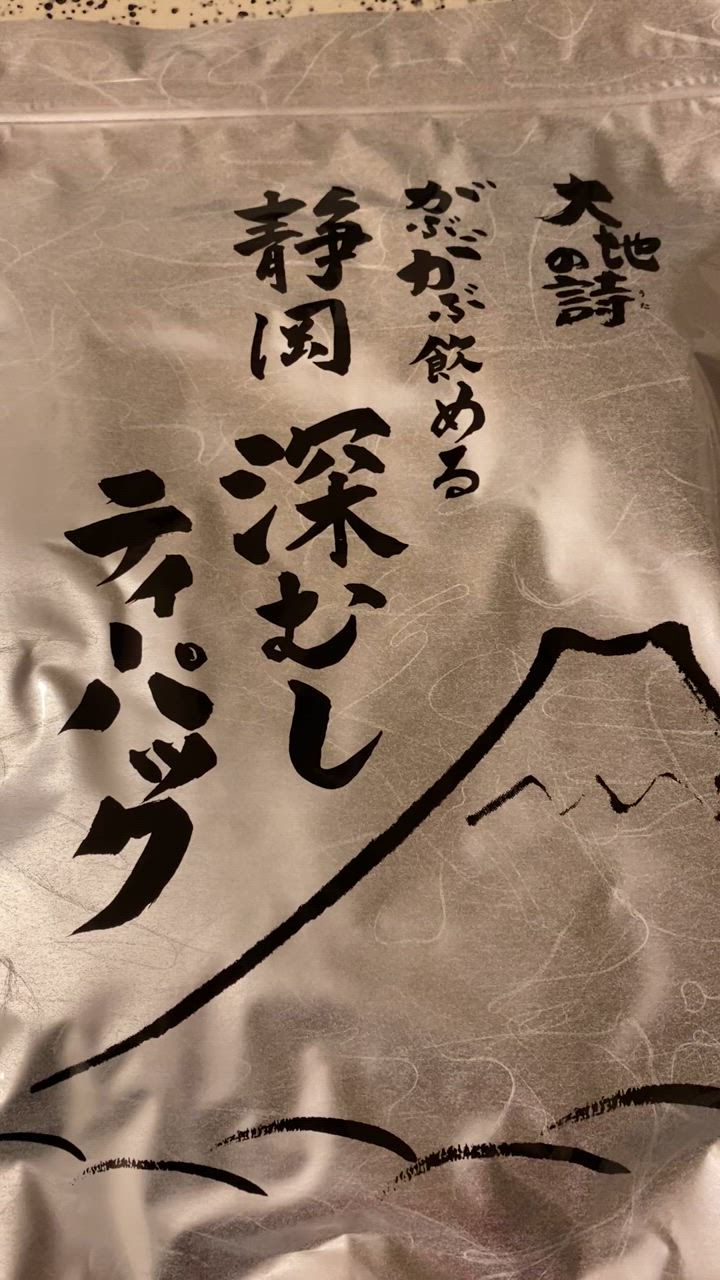 大地の詩
うた
がぶがぶ飲める
静岡
深むし
ティーパック